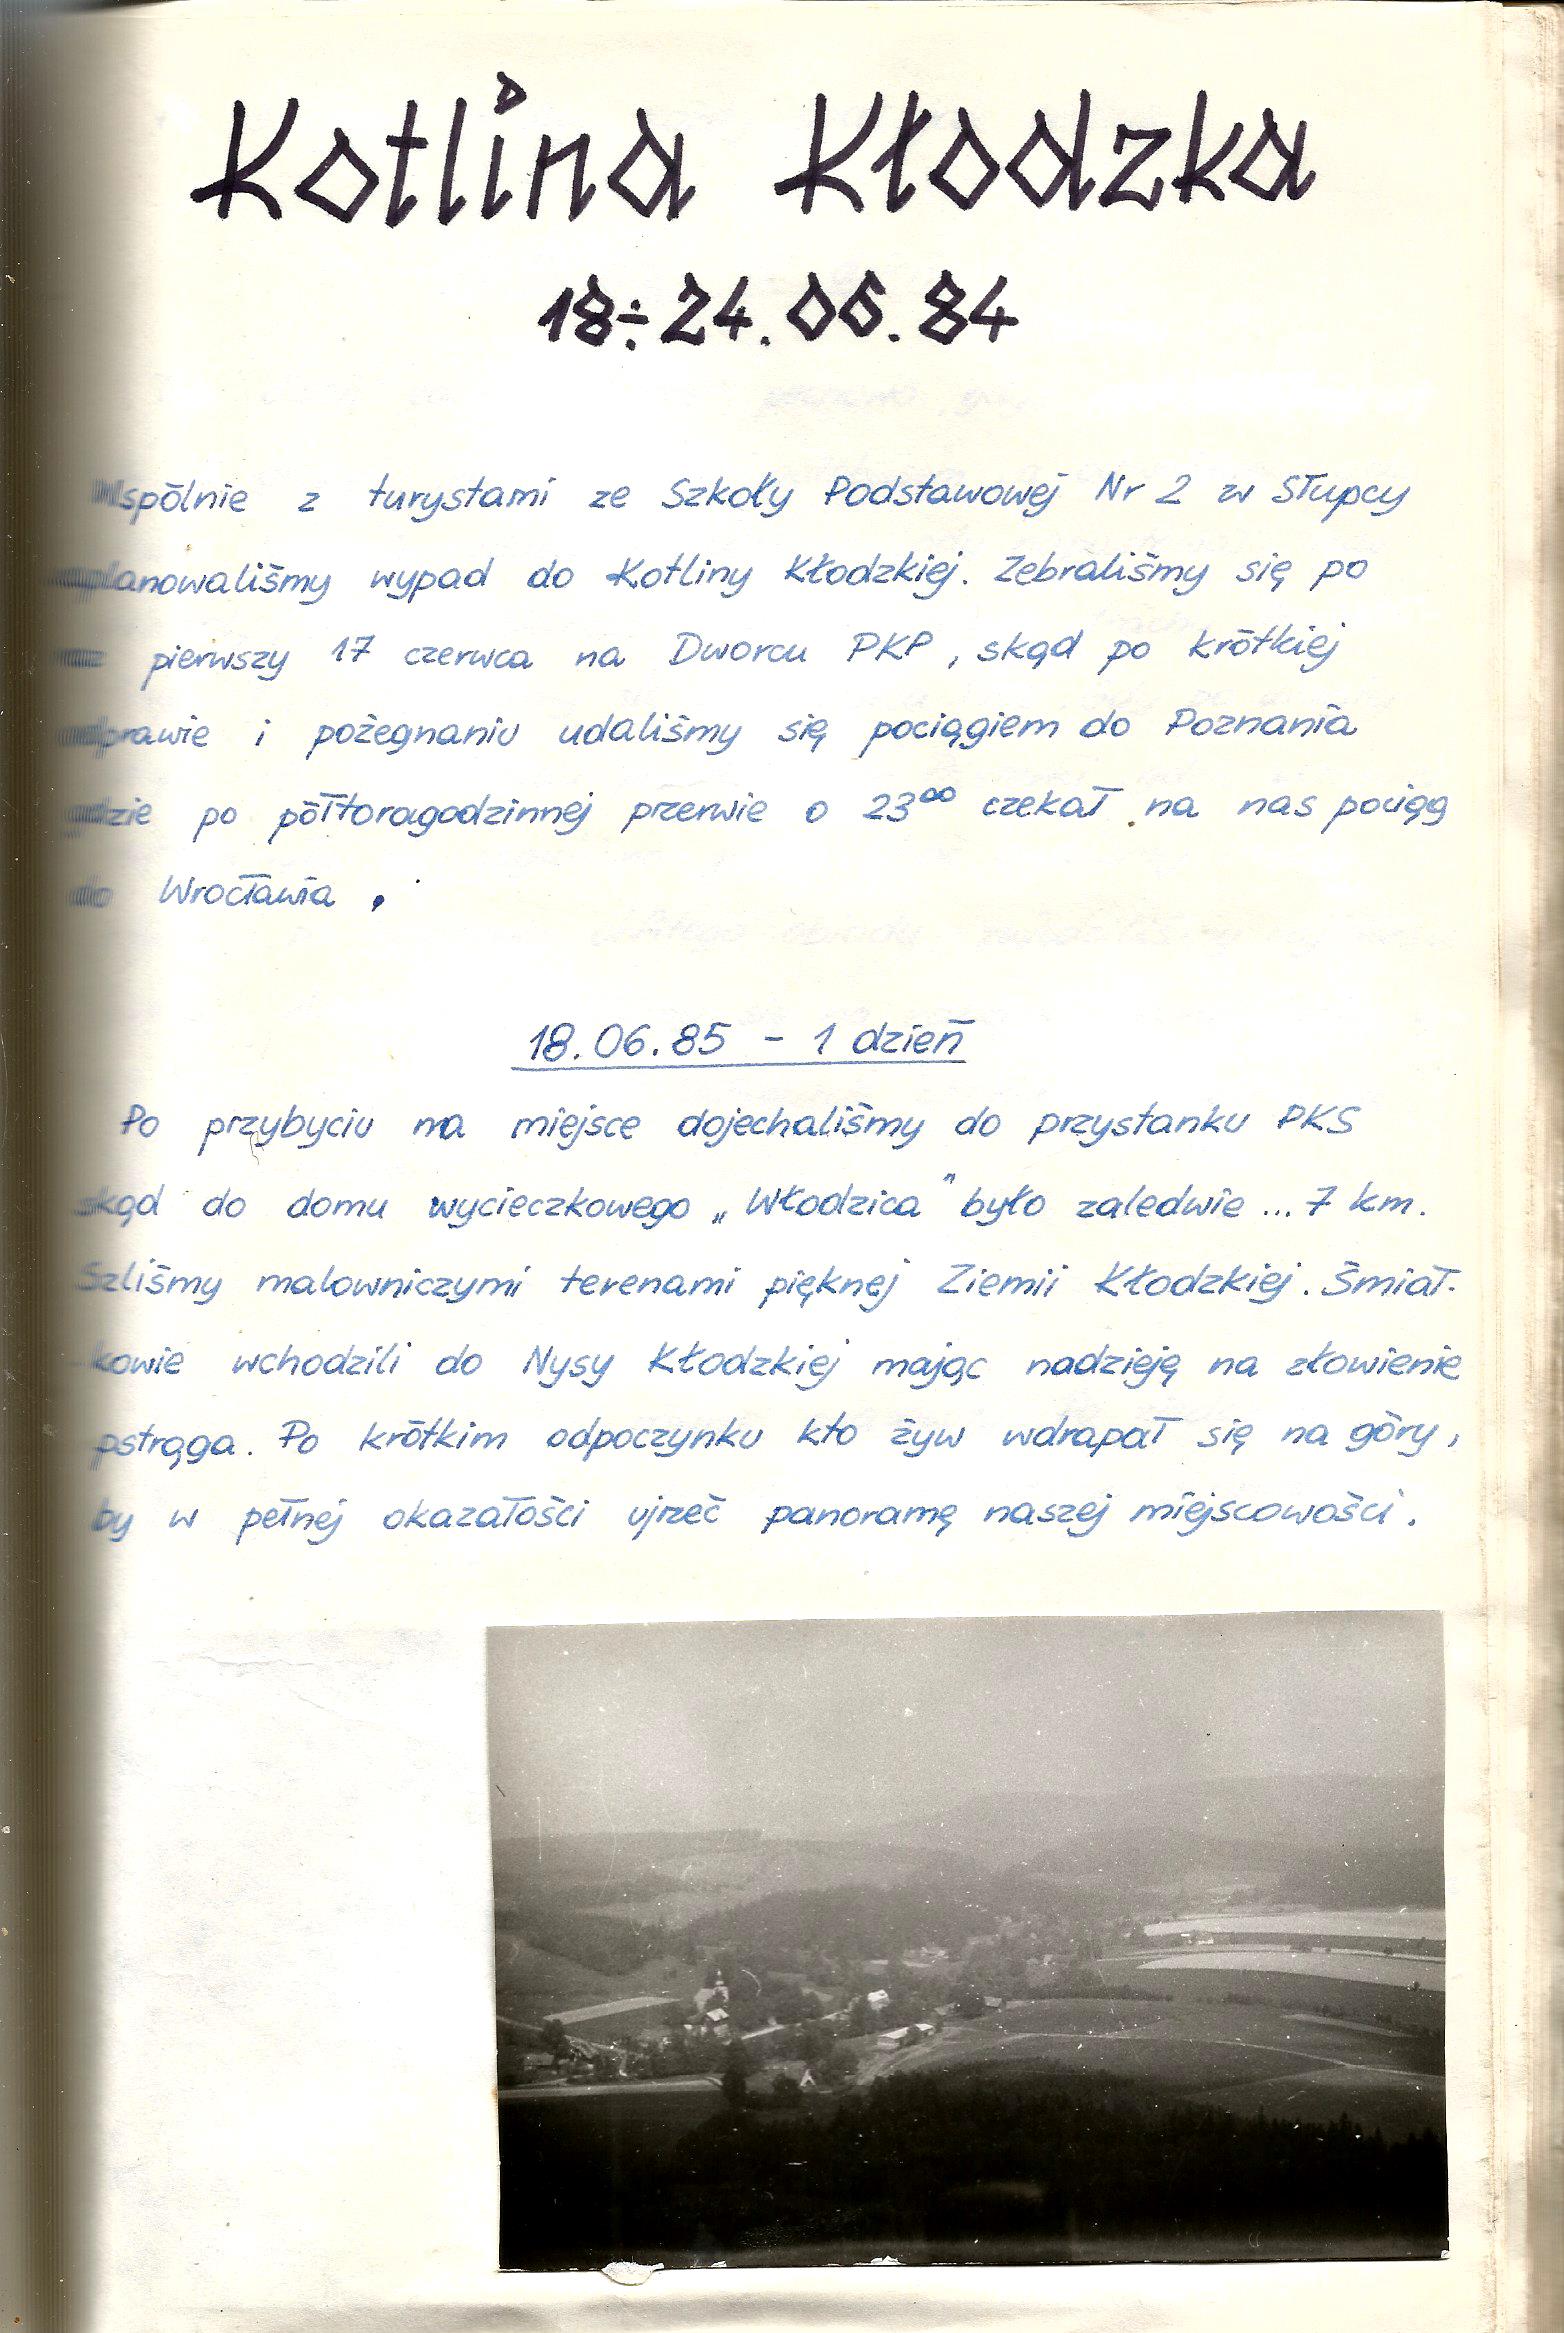 Kotlina Kłodzka
18÷24.06.84
Wspólnie z turystami ze Szkoły Podstawowej Nr 2 w Słupcy
zaplanowaliśmy wypad do Kotliny Kłodzkiej. Zebraliśmy się po
raz pierwszy 17 czerwca na Dworcu PKP, skąd po krótkiej
odprawie i pożegnaniu udaliśmy się pociągiem do Poznania
gdzie po półtoragodzinnej przerwie o 23⁰⁰ czekał na nas pociąg
do Wrocławia.
18.06.85 - 1 dzień
Po przybyciu na miejsce dojechaliśmy do przystanku PKS
skąd do domu wycieczkowego „Włodzica" było zaledwie ... 7 km.
Szliśmy malowniczymi terenami pięknej Ziemii Kłodzkiej. Śmiał-
-kowie wchodzili do Nysy Kłodzkiej mając nadzieję na złowienie
pstrąga. Po krótkim odpoczynku kto żyw wdrapał się na góry,
by w pełnej okazałości ujrzeć panoramę naszej miejscowości.